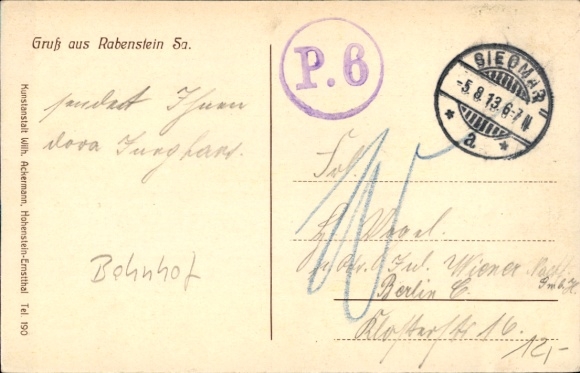 Gruß aus Rabenstein Sa.
P. 6
SIEGMAR
-5.8.13.6-7 N
* a. *
sendet Ihnen
dora Junghans.
Bahnhof
Frl.
H. Vogel.
Jul. Wiener Nachf.
G.m.b.H.
Berlin C.
Klosterstr 16.
12,-
Kunstanstalt Wilh. Ackermann, Hohenstein-Ernstthal Tel. 190